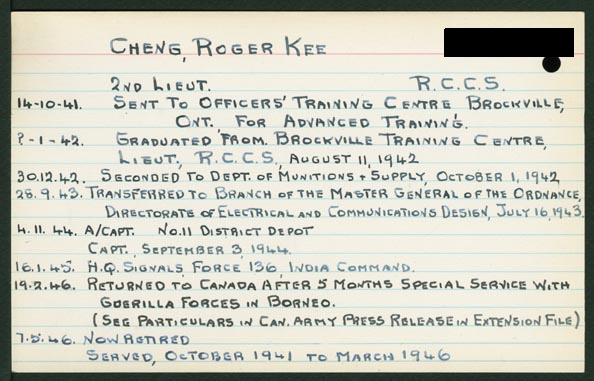 CHENG, ROGER KEE
2ND LIEUT. R.C.C.S.
14-10-41. SENT TO OFFICERS' TRAINING CENTRE BROCKVILLE,
ONT. FOR ADVANCED TRAINING.
?-1-42. GRADUATED FROM BROCKVILLE TRAINING CENTRE,
LIEUT., R.C.C.S., AUGUST 11, 1942
30.12.42. SECONDED TO DEPT. OF MUNITIONS + SUPPLY, OCTOBER 1, 1942
28.9.43. TRANSFERRED TO BRANCH OF THE MASTER GENERAL OF THE ORDNANCE,
DIRECTORATE OF ELECTRICAL AND COMMUNICATIONS DESIGN, JULY 16, 1943.
4.11.44. A/CAPT. NO.11 DISTRICT DEPOT
CAPT., SEPTEMBER 3, 1944.
16.1.45. H.Q. SIGNALS, FORCE 136, INDIA COMMAND.
19.2.46. RETURNED TO CANADA AFTER 5 MONTHS SPECIAL SERVICE WITH
GUERILLA FORCES IN BORNEO.
(SEE PARTICULARS IN CAN. ARMY PRESS RELEASE IN EXTENSION FILE)
7.5.46. NOW RETIRED
SERVED, OCTOBER 1941 TO MARCH 1946